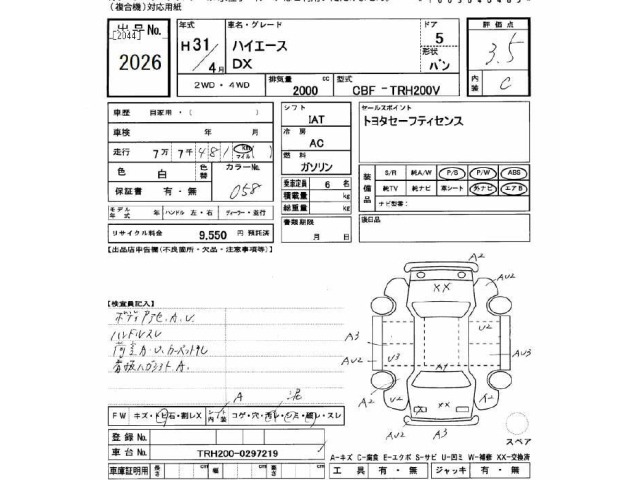 (複合機)対応用紙
出品No.
[2044]
2026
年式
H 31/4月
車名・グレード
ハイエース
DX
ドア
5
形状
バン
評価点
3.5
内装
C
2WD・4WD
排気量
2000 cc
型式
CBF -TRH200V
車歴 自家用・( )
車検 年 月
走行 7万 7千 481 km マイル ( )
色 白 色替 カラーNo. 058
保証書 有・無
モデル年式 年 ハンドル 左・右 ディーラー・並行
リサイクル料金 9,550 円 預託済
シフト
IAT
冷房
AC
燃料
ガソリン
乗車定員 6 名
積載量 kg
総重量 kg
書類期限
月 日
セールスポイント
トヨタセーフティセンス
装備品
S/R 純A/W P/S P/W ABS
純TV 純ナビ 革シート 外ナビ エアB
ナビ型番:
後日品
【出品店申告欄(不良箇所・欠品・注意事項等)】
【検査員記入】
ハンドルスレ
A2
AU2
XX
A3
U2
AU2
U3
AU3
A1
A2
U2
XX
AU2
A3
スペア
A
FW キズ・トビ石・割レX 内装 コゲ・穴・汚レ・シミ・破レ・スレ
登録No.
車台No. TRH200-0297219
A-キズ C-腐食 E-エクボ S-サビ U-凹ミ W-補修 XX-交換済
車庫証明用 長さ cm 幅 cm 高さ cm
工具 有・無 ジャッキ 有・無